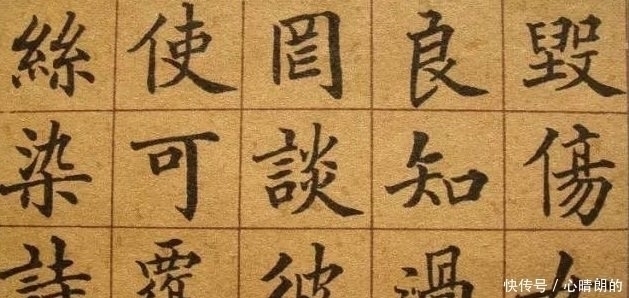 毀傷女
良知過
罔談彼
使可覆
絲染詩
快传号 / 心晴朗的